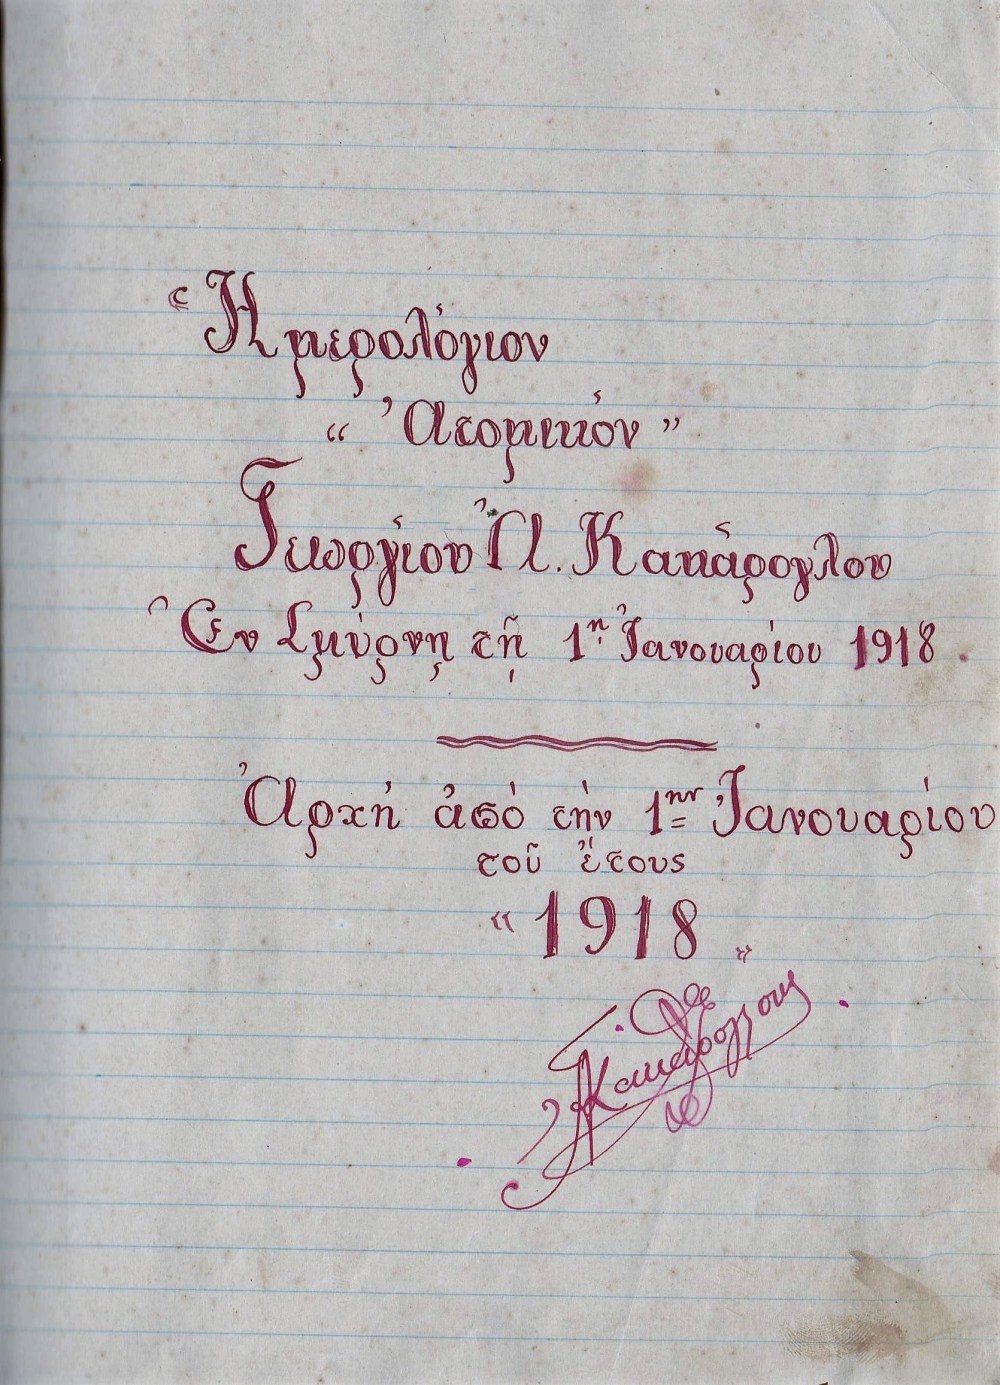 Ἡμερολόγιον
« Ἀτομικόν »
Γεωργίου Π. Κακάρογλου
Ἐν Σμύρνῃ τῇ 1ῃ Ἰανουαρίου 1918.
Ἀρχὴ ἀπὸ τὴν 1ην Ἰανουαρίου
τοῦ ἔτους
« 1918 »